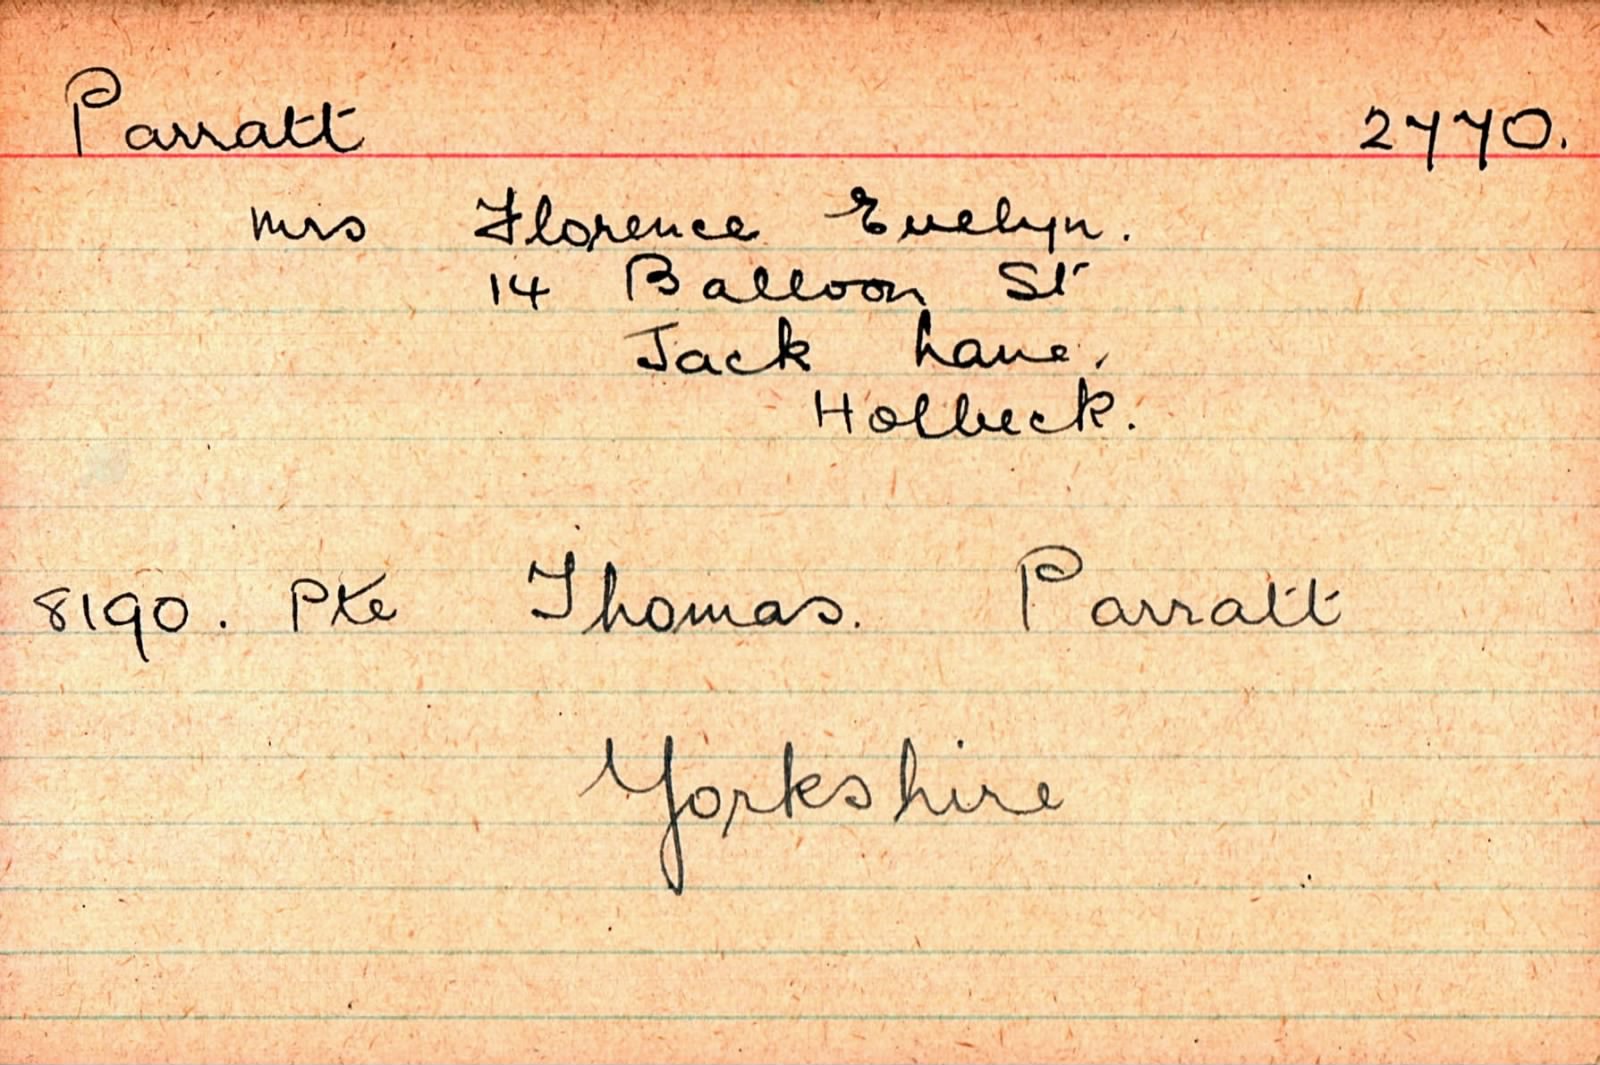 Parratt 2770.
Mrs Florence Evelyn.
14 Balloon St
Jack Lane.
Holbeck.
8190. Pte Thomas. Parratt
Yorkshire